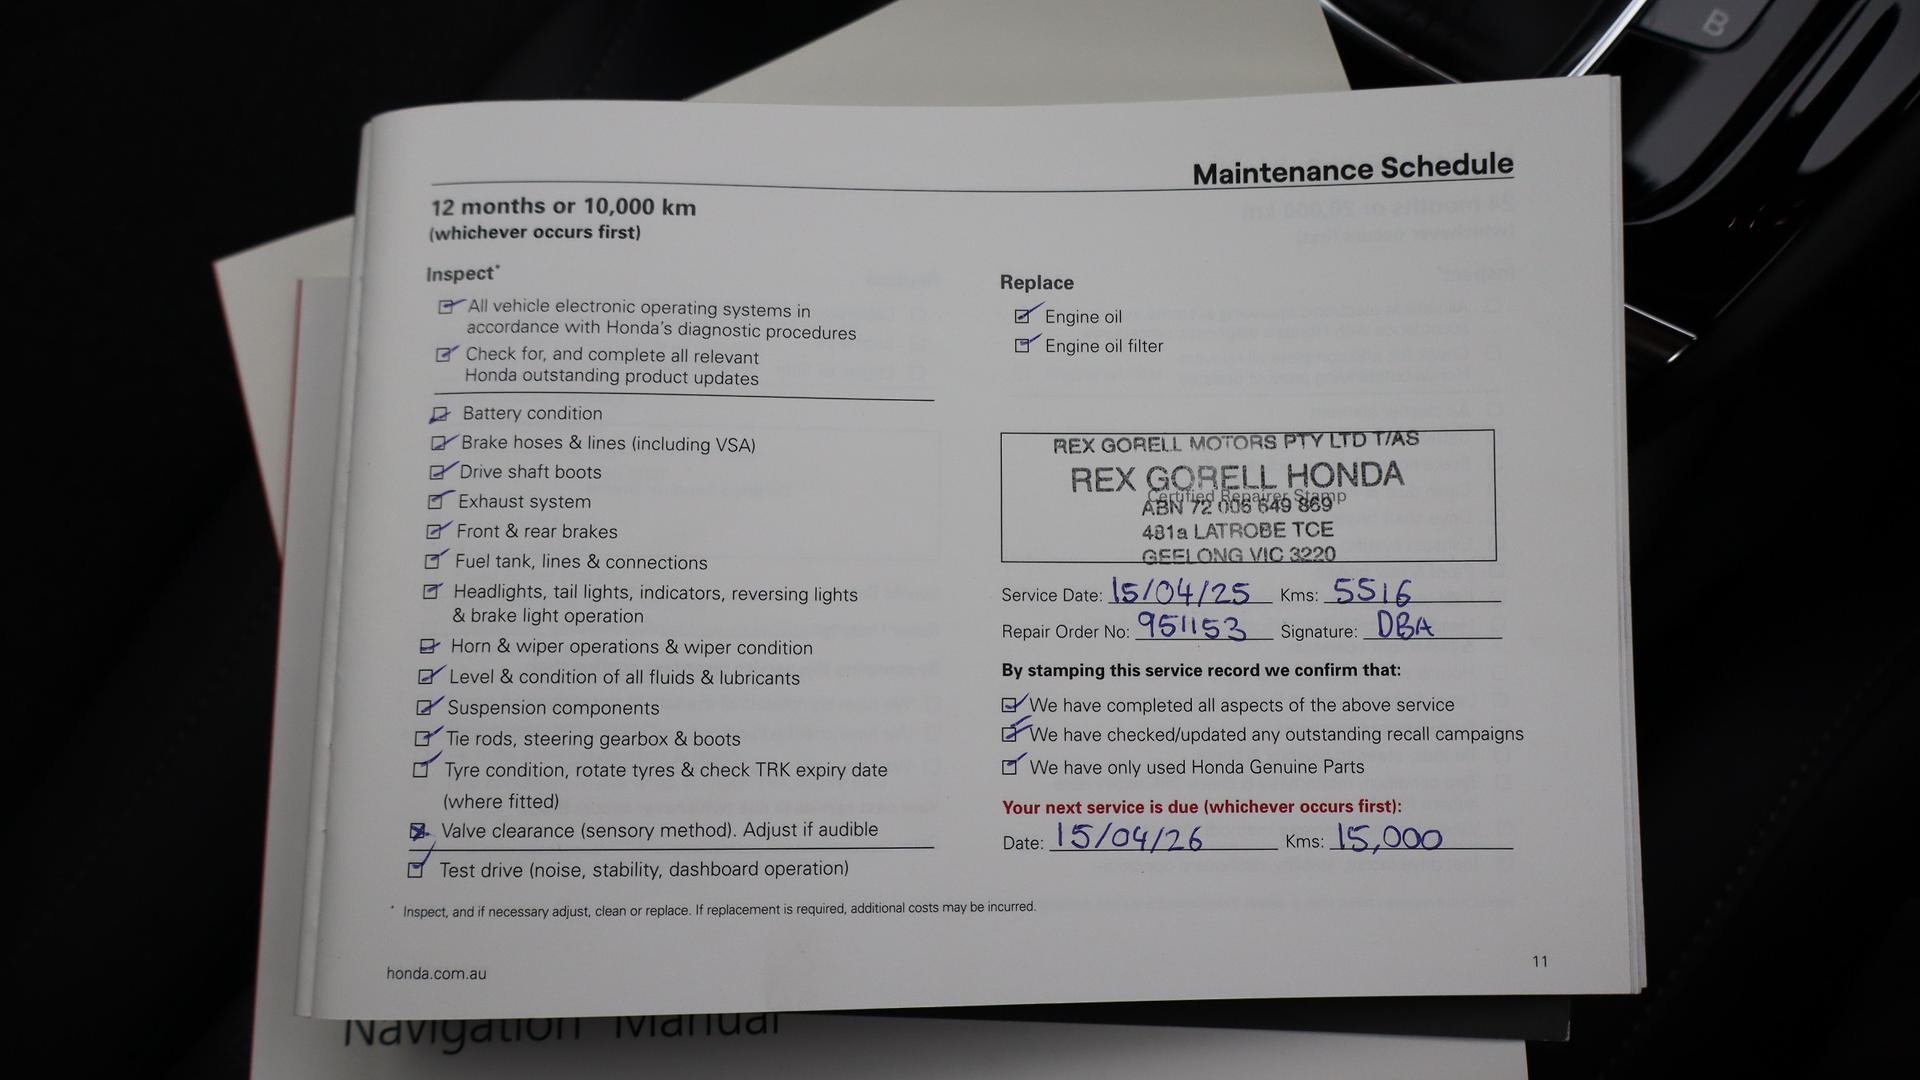 B
Maintenance Schedule
12 months or 10,000 km
(whichever occurs first)
Inspect*
All vehicle electronic operating systems in
accordance with Honda's diagnostic procedures
Check for, and complete all relevant
Honda outstanding product updates
Battery condition
Brake hoses & lines (including VSA)
Drive shaft boots
Exhaust system
Front & rear brakes
Fuel tank, lines & connections
Headlights, tail lights, indicators, reversing lights
& brake light operation
Horn & wiper operations & wiper condition
Level & condition of all fluids & lubricants
Suspension components
Tie rods, steering gearbox & boots
Tyre condition, rotate tyres & check TRK expiry date
(where fitted)
Valve clearance (sensory method). Adjust if audible
Test drive (noise, stability, dashboard operation)
Replace
Engine oil
Engine oil filter
REX GORELL MOTORS PTY LTD T/AS
REX GORELL HONDA
Certified Repairer Stamp
ABN 72 006 649 869
481a LATROBE TCE
GEELONG VIC 3220
Service Date: 15/04/25 Kms: 5516
Repair Order No: 951153 Signature: DBA
By stamping this service record we confirm that:
We have completed all aspects of the above service
We have checked/updated any outstanding recall campaigns
We have only used Honda Genuine Parts
Your next service is due (whichever occurs first):
Date: 15/04/26 Kms: 15,000
* Inspect, and if necessary adjust, clean or replace. If replacement is required, additional costs may be incurred.
honda.com.au
11
Navigation Manual